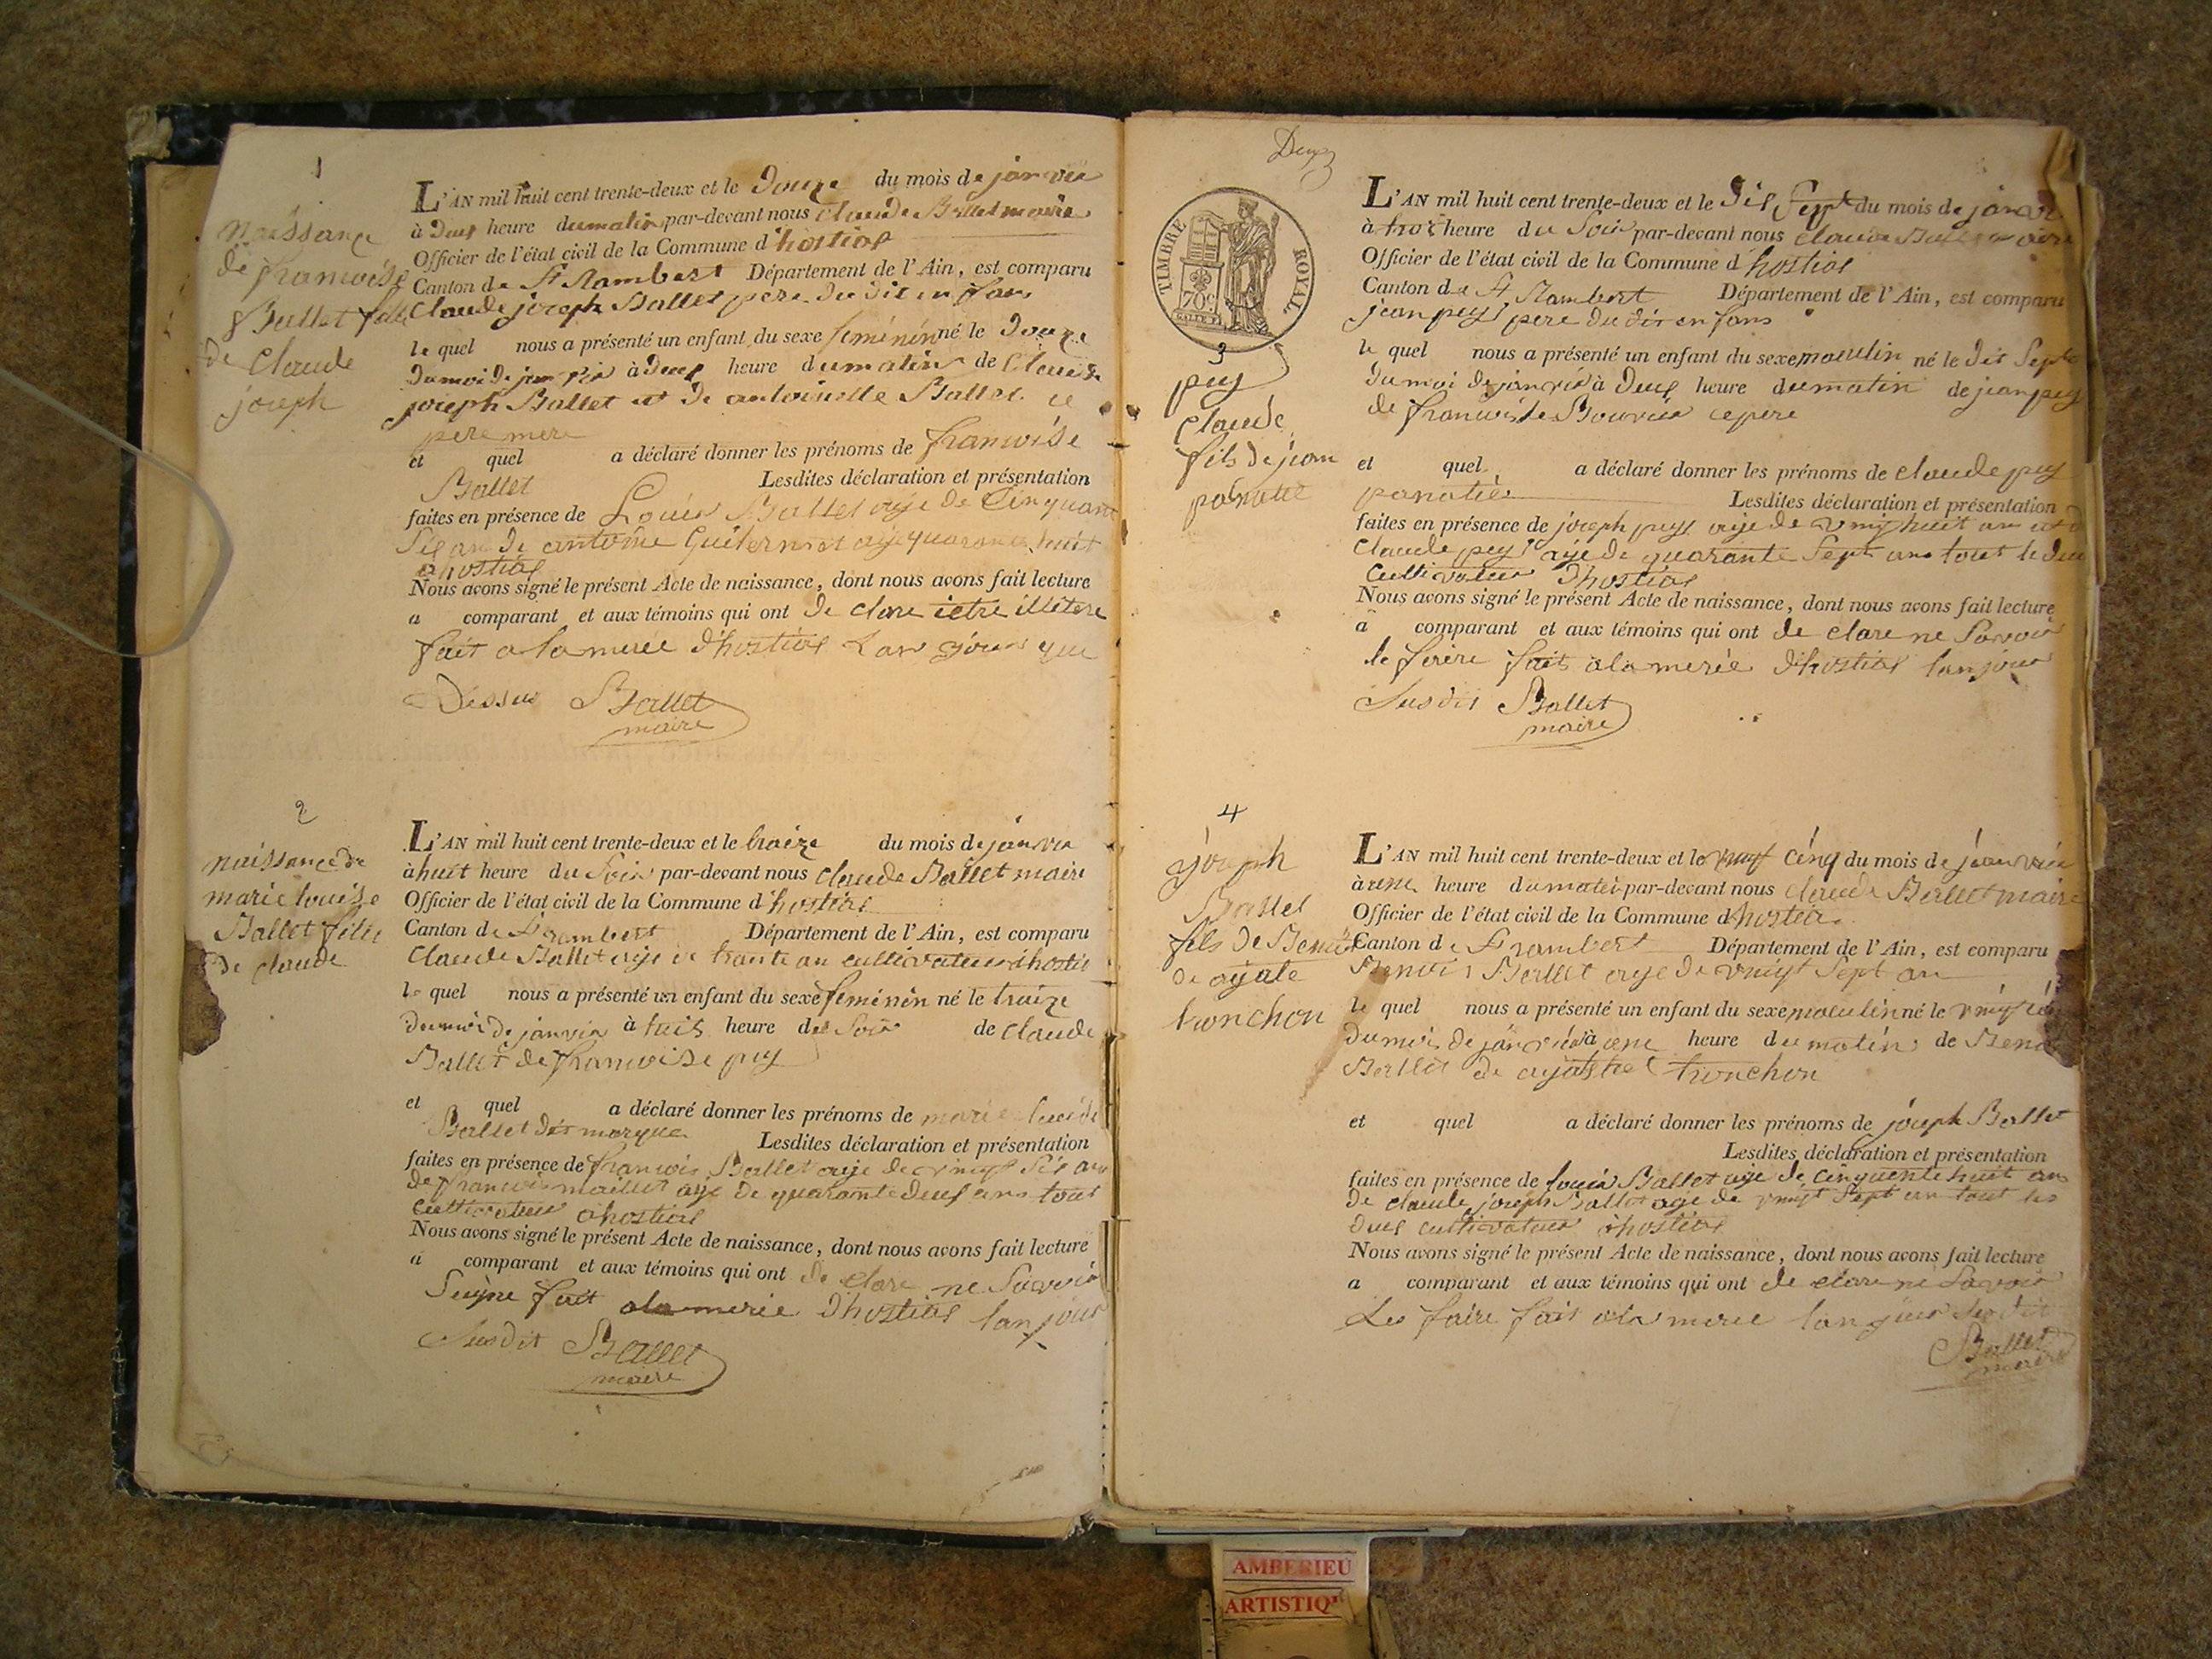 1
naissance
de francoise
Ballet fille
de Claude
joseph
L'AN mil huit cent trente-deux et le Douze du mois de janvier
à Deus heure du matin par-devant nous Claude Ballet maire
Officier de l'état civil de la Commune d'hostias
Canton de St Rambert Département de l'Ain, est comparu
Claude joseph Ballet pere du dit enfans
le quel nous a présenté un enfant du sexe feminén né le Douze
du moi de janvier à Deus heure du matin de Claude
joseph Ballet et de antoinette Ballet ce
pere mere
et quel a déclaré donner les prénoms de francoise
Ballet Lesdites déclaration et présentation
faites en présence de Louis Ballet aije de Cinquante
de antoine aije quarante huit
a hostias
Nous avons signé le présent Acte de naissance, dont nous avons fait lecture
a comparant et aux témoins qui ont de clare ietre illétere
fait a la merie d'hostias L'an jour que
Dessus Ballet
maire
2
naissance de
marie louise
Ballet fille
de claude
L'AN mil huit cent trente-deux et le traize du mois de janvier
à huit heure du Soir par-devant nous Claude Ballet maire
Officier de l'état civil de la Commune d'hostias
Canton de St rambert Département de l'Ain, est comparu
Claude Ballet aije de trante an cultivateur a hostias
le quel nous a présenté un enfant du sexe feminén né le traize
du moi de janvier à huit heure du Soir de claude
Ballet de francoise puy
et quel a déclaré donner les prénoms de marie
Ballet Lesdites déclaration et présentation
faites en présence de francois Ballet aije de vingt Sis ans
de francois maillet aije de quarante deus ans tous
cultivateur a hostias
Nous avons signé le présent Acte de naissance, dont nous avons fait lecture
a comparant et aux témoins qui ont de clare ne Savoir
Seigne fait a la merie d'hostias l'an jour
Susdit Ballet
maire
Deux
TIMBRE ROYAL
70c.
3
puy
Claude
fils de jean
L'AN mil huit cent trente-deux et le Dis Sept du mois de janvier
à trois heure du Soir par-devant nous Claude Ballet maire
Officier de l'état civil de la Commune d'hostias
Canton de St Rambert Département de l'Ain, est comparu
jean puy pere du dit enfans
le quel nous a présenté un enfant du sexe masculin né le Dis Sept
du moi de janvier à Deus heure du matin de jean puy
de francoise Bouvier ce pere
et quel a déclaré donner les prénoms de Claude puy
Lesdites déclaration et présentation
faites en présence de joseph puy aije de vingt huit an et de
Claude puy aije de quarante Sept ans tout le deus
Cultivateur d'hostias
Nous avons signé le présent Acte de naissance, dont nous avons fait lecture
a comparant et aux témoins qui ont de clare ne Savoir
le ferire fait a la merie d'hostias l'an jour
Susdit Ballet
maire
4
joseph
Ballet
fils de Benoit
de agate
tronchon
L'AN mil huit cent trente-deux et le vingt cinq du mois de janvier
à une heure du matin par-devant nous Claude Ballet maire
Officier de l'état civil de la Commune d'hostias
Canton de St rambert Département de l'Ain, est comparu
Benoit Ballet aije de vingt Sept an
le quel nous a présenté un enfant du sexe masculin né le vingt cin
du mois de janvier à une heure du matin de Benoit
Ballet de agathe tronchon
et quel a déclaré donner les prénoms de joseph Ballet
Lesdites déclaration et présentation
faites en présence de louis Ballet aije de cinquente huit ans
de Claude joseph Ballet age de vingt Sept an tout les
deus cultivateur a hostias
Nous avons signé le présent Acte de naissance, dont nous avons fait lecture
a comparant et aux témoins qui ont de clare ne Savoir
Les faire fait a la merie l'an jour Susdit
Ballet
maire
AMBERIEU
ARTISTIQ